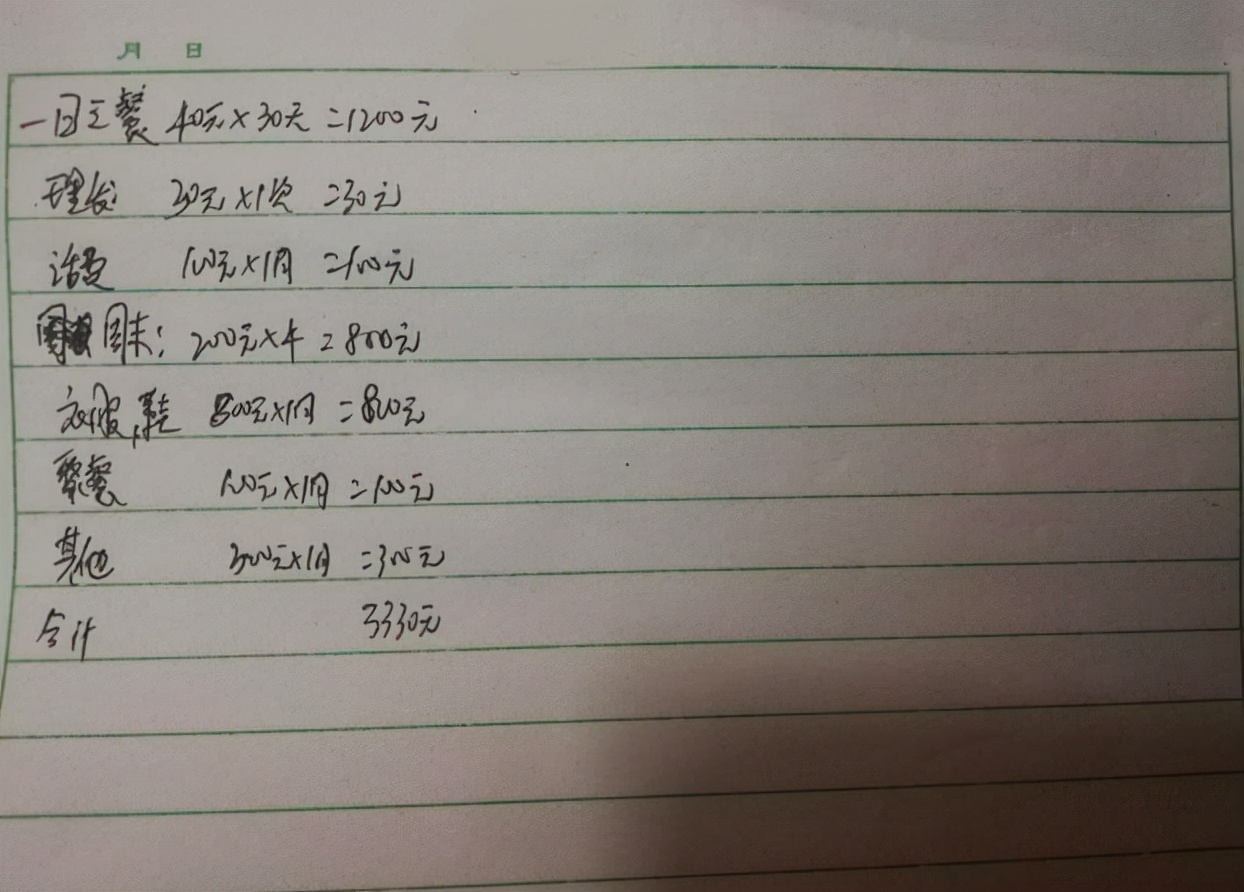 月 日
一日三餐 40元×30天=1200元
理发 30元×1次=30元
话费 100元×1月=100元
周末:200元×4=800元
衣服,鞋 800元×1月=800元
聚餐 100元×1月=100元
其他 300元×1月=300元
合计 3330元